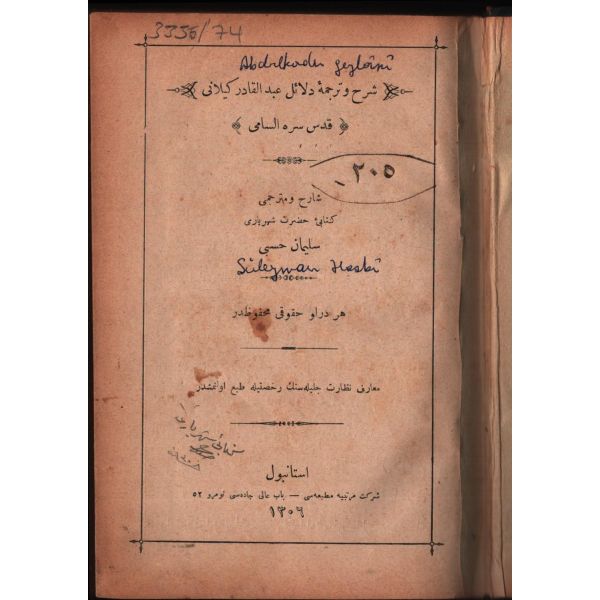 3556/74
Abdülkadir Geylânî
شرح و ترجمهٔ دلائل عبد القادر كيلانى
﴿ قدس سره السامى ﴾
٢٠٥
شارح و مترجمى
كتابئ حضرت شهريارى
سليمان حسبى
Süleyman Hasbî
هر درلو حقوقى محفوظدر
معارف نظارت جليله سنك رخصتيله طبع اولنمشدر
استانبول
شركت مرتبيه مطبعه سى — باب عالى جاده سى نومرو ٥٢
١٣٠٦